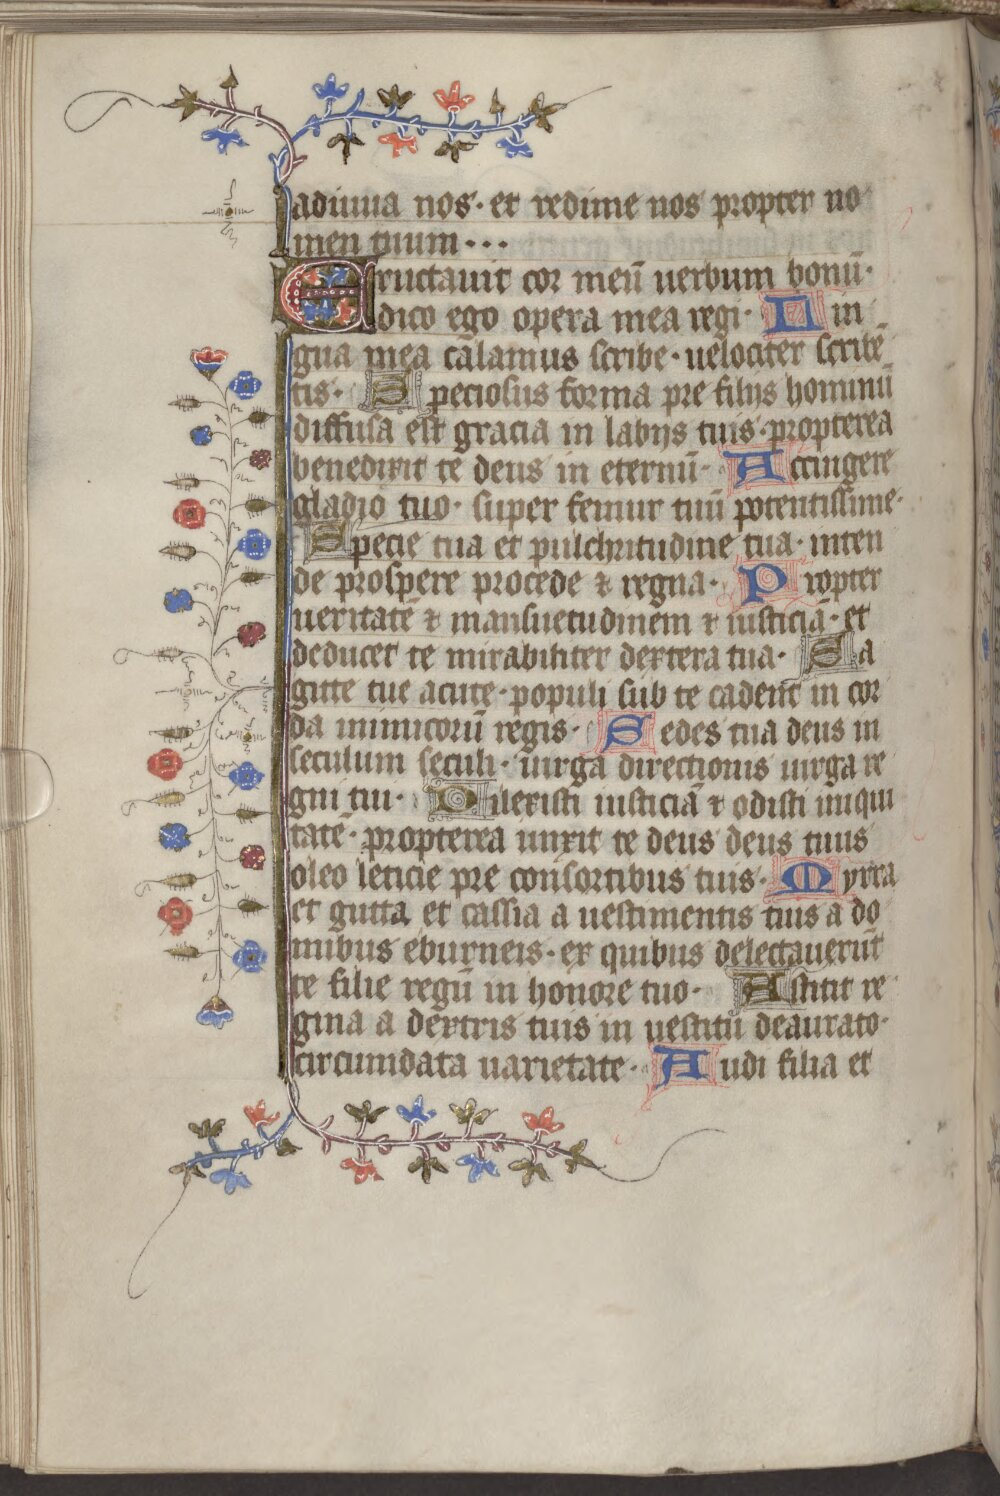 adiuua nos· et redime nos propter no
men tuum···
Eructauit cor meū uerbum bonū·
dico ego opera mea regi· Lin
gua mea calamus scribe· uelociter scribē
tis· Speciosus forma pre filijs hominū
diffusa est gracia in labijs tuis· propterea
benedixit te deus in eternū· Accingere
gladio tuo· super femur tuū potentissime·
Specie tua et pulchritudine tua· inten
de prospere procede ⁊ regna· Propter
ueritatē ⁊ mansuetudinem ⁊ iusticiā· et
deducet te mirabiliter dextera tua· Sa
gitte tue acute· populi sub te cadent in cor
da inimicorū regis· Sedes tua deus in
seculum seculi· uirga directionis uirga re
gni tui· Dilexisti iusticiā ⁊ odisti iniqui
tatē· propterea unxit te deus deus tuus
oleo leticie pre consortibus tuis· Myrra
et gutta et cassia a uestimentis tuis a do
mibus eburneis· ex quibus delectauerūt
te filie regū in honore tuo· Astitit re
gina a dextris tuis in uestitu deaurato·
circumdata uarietate· Audi filia et